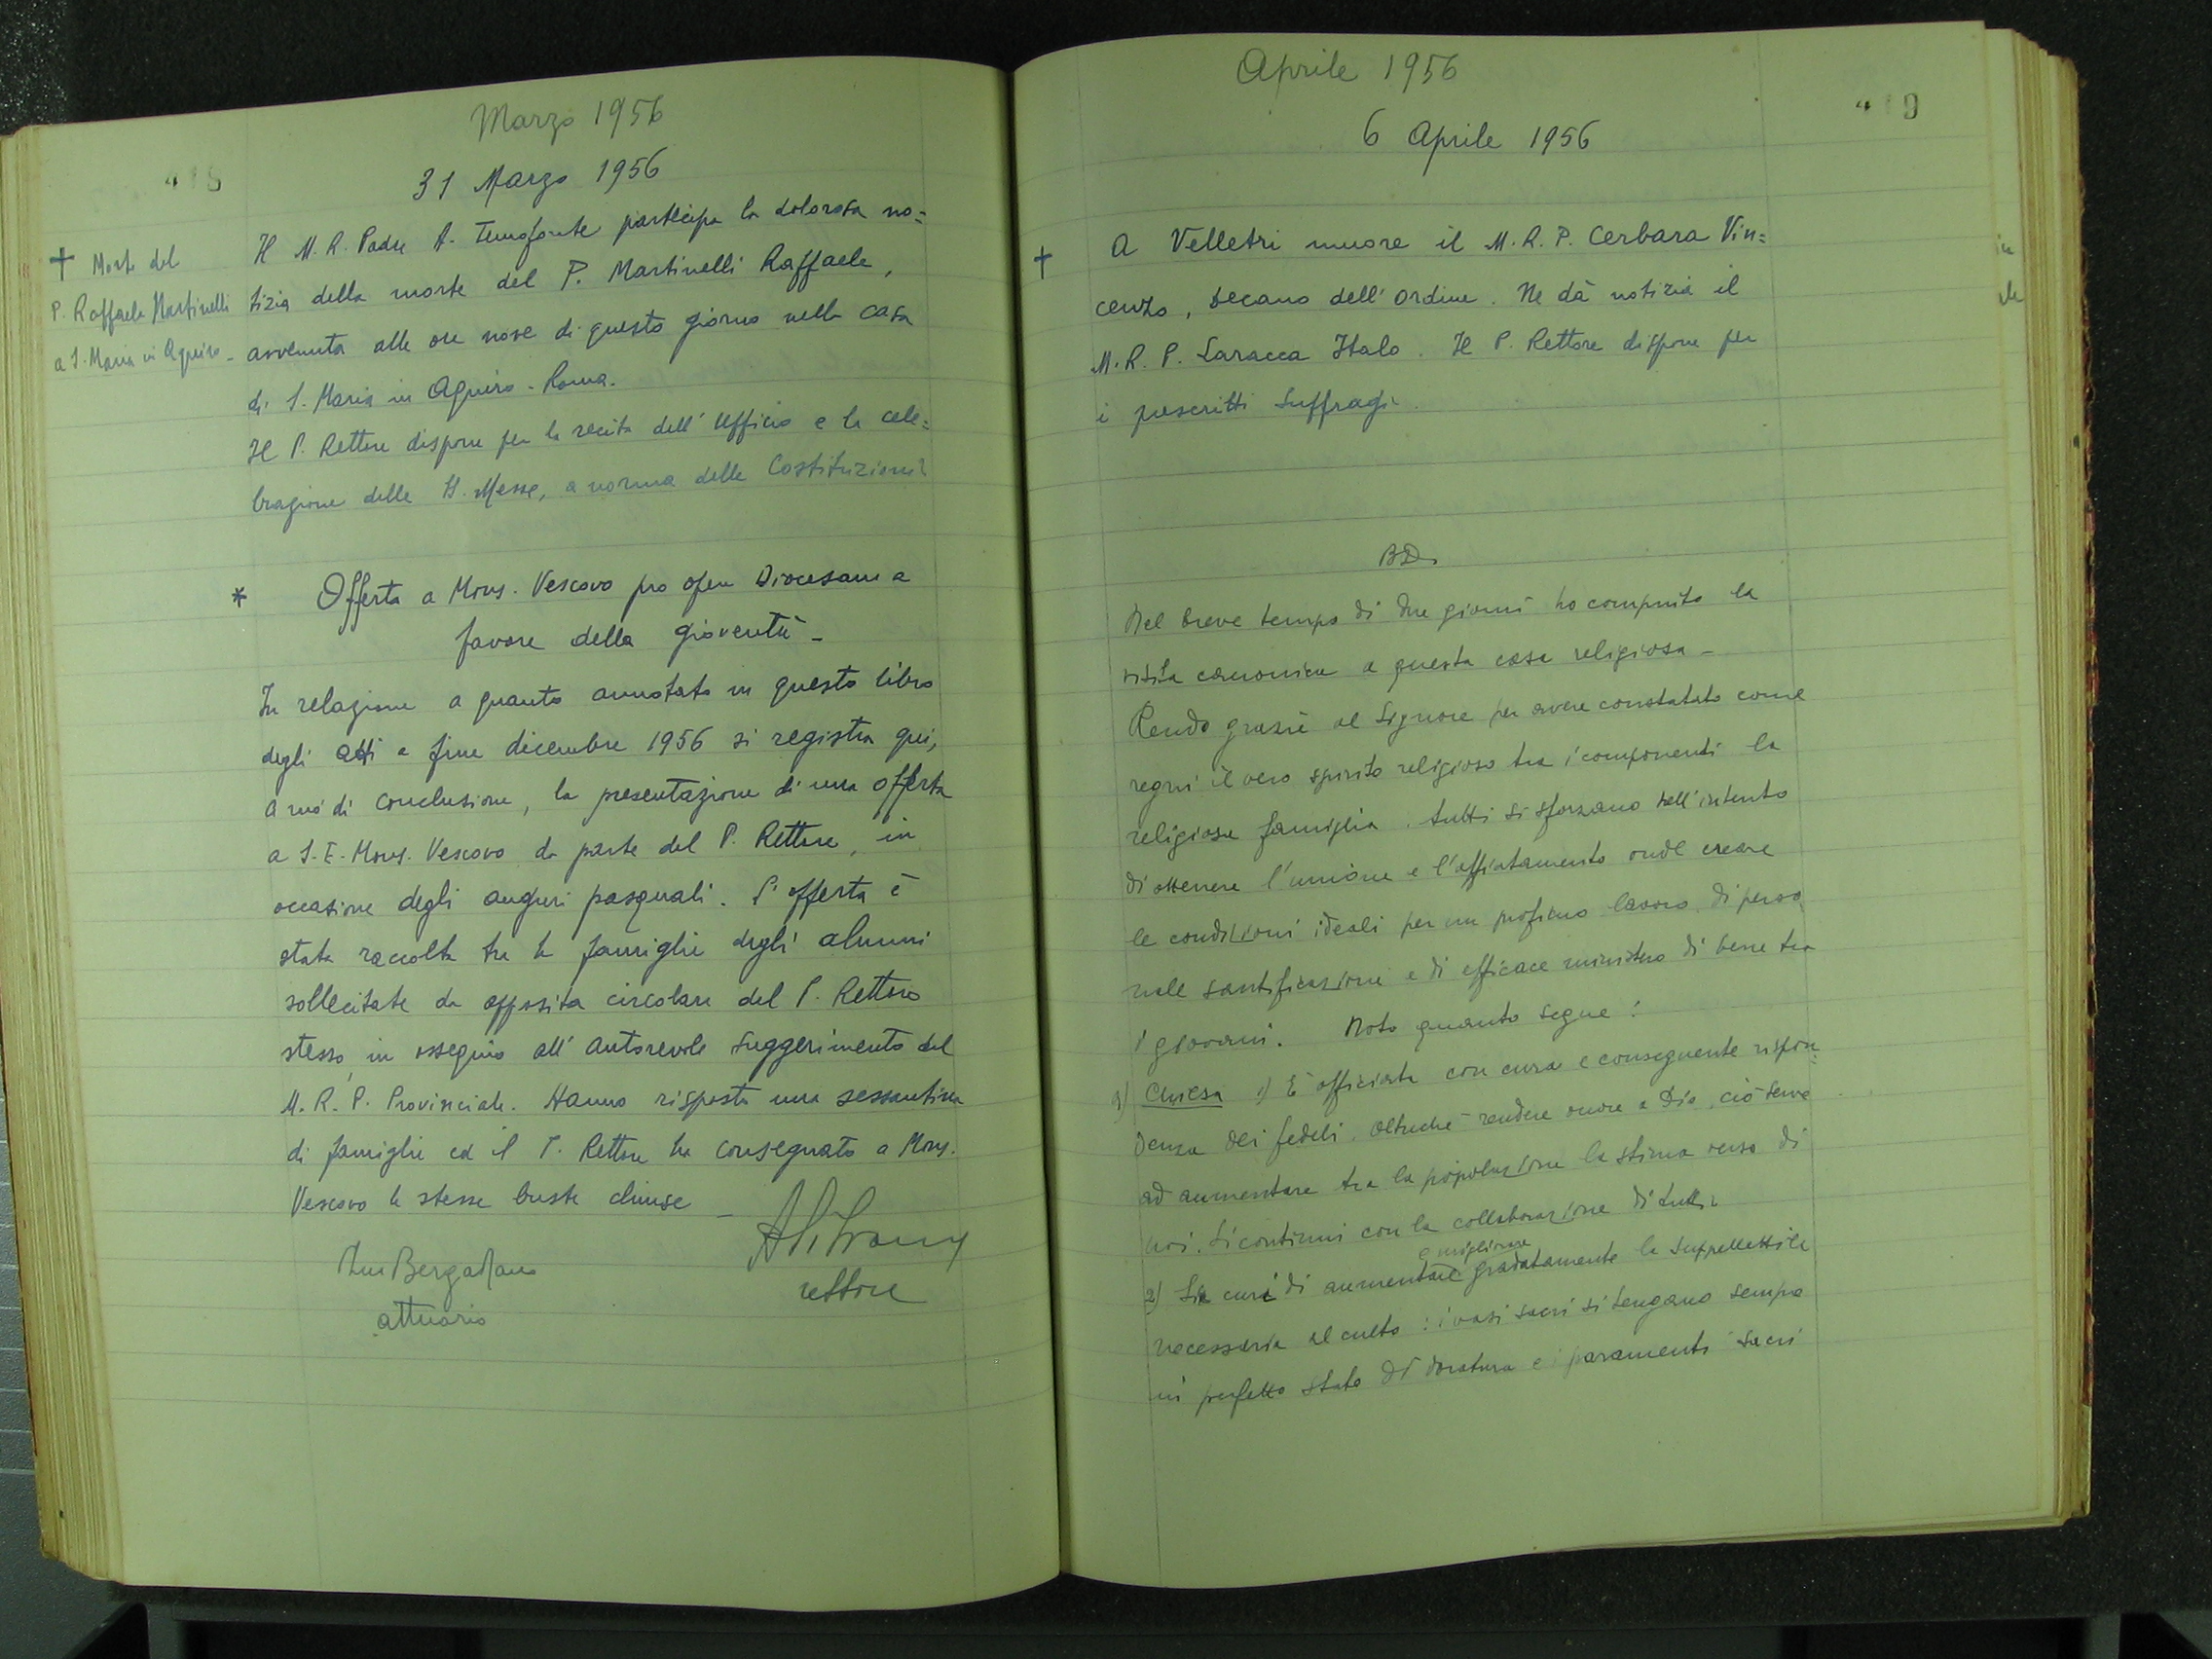 Marzo 1956
418
31 Marzo 1956
✝ Morte del
P. Raffaele Martinelli
a S. Maria in Aquiro -
Il M. R. Padre A. Temofonte partecipa la dolorosa no=
tizia della morte del P. Martinelli Raffaele,
avvenuta alle ore nove di questo giorno nella casa
di S. Maria in Aquiro - Roma.
Il P. Rettore dispone per la recita dell'Ufficio e la cele=
brazione delle SS. Messe, a norma delle Costituzioni
* Offerta a Mons. Vescovo pro opere Diocesane a
favore della gioventù -
In relazione a quanto annotato in questo libro
degli atti a fine dicembre 1956 si registra qui,
a mo' di conclusione, la presentazione di una offerta
a S. E. Mons. Vescovo da parte del P. Rettore, in
occasione degli auguri pasquali. L'offerta è
stata raccolta tra le famiglie degli alunni
sollecitate da apposita circolare del P. Rettore
stesso, in ossequio all'autorevole suggerimento del
M. R. P. Provinciale. Hanno risposto una sessantina
di famiglie ed il P. Rettore ha consegnato a Mons.
Vescovo le stesse buste chiuse -
rettore
Bergadano
attuario
Aprile 1956
419
6 Aprile 1956
✝ A Velletri muore il M. R. P. Cerbara Vin=
cenzo, Decano dell'Ordine. Ne dà notizia il
M. R. P. Laracca Italo. Il P. Rettore dispone per
i prescritti suffragi.
BD.
Nel breve tempo di due giorni ho compiuto la
visita canonica a questa casa religiosa -
Rendo grazie al Signore per avere constatato come
regni il vero spirito religioso tra i componenti la
religiosa famiglia. Tutti si sforzano nell'intento
di ottenere l'unione e l'affiatamento onde creare
le condizioni ideali per un proficuo lavoro di perso
nale santificazione e di efficace ministero di bene tra
i giovani. Noto quanto segue:
a) Chiesa 1) È officiata con cura e conseguente rispon=
denza dei fedeli. Oltreché rendere onore a Dio, ciò serve
ad aumentare tra la popolazione la stima verso di
noi. Si continui con la collaborazione di tutti.
e migliorare
2) Si curi di aumentare gradatamente la suppellettile
necessaria al culto: i vasi sacri si tengano sempre
in perfetto stato di doratura e i paramenti sacri